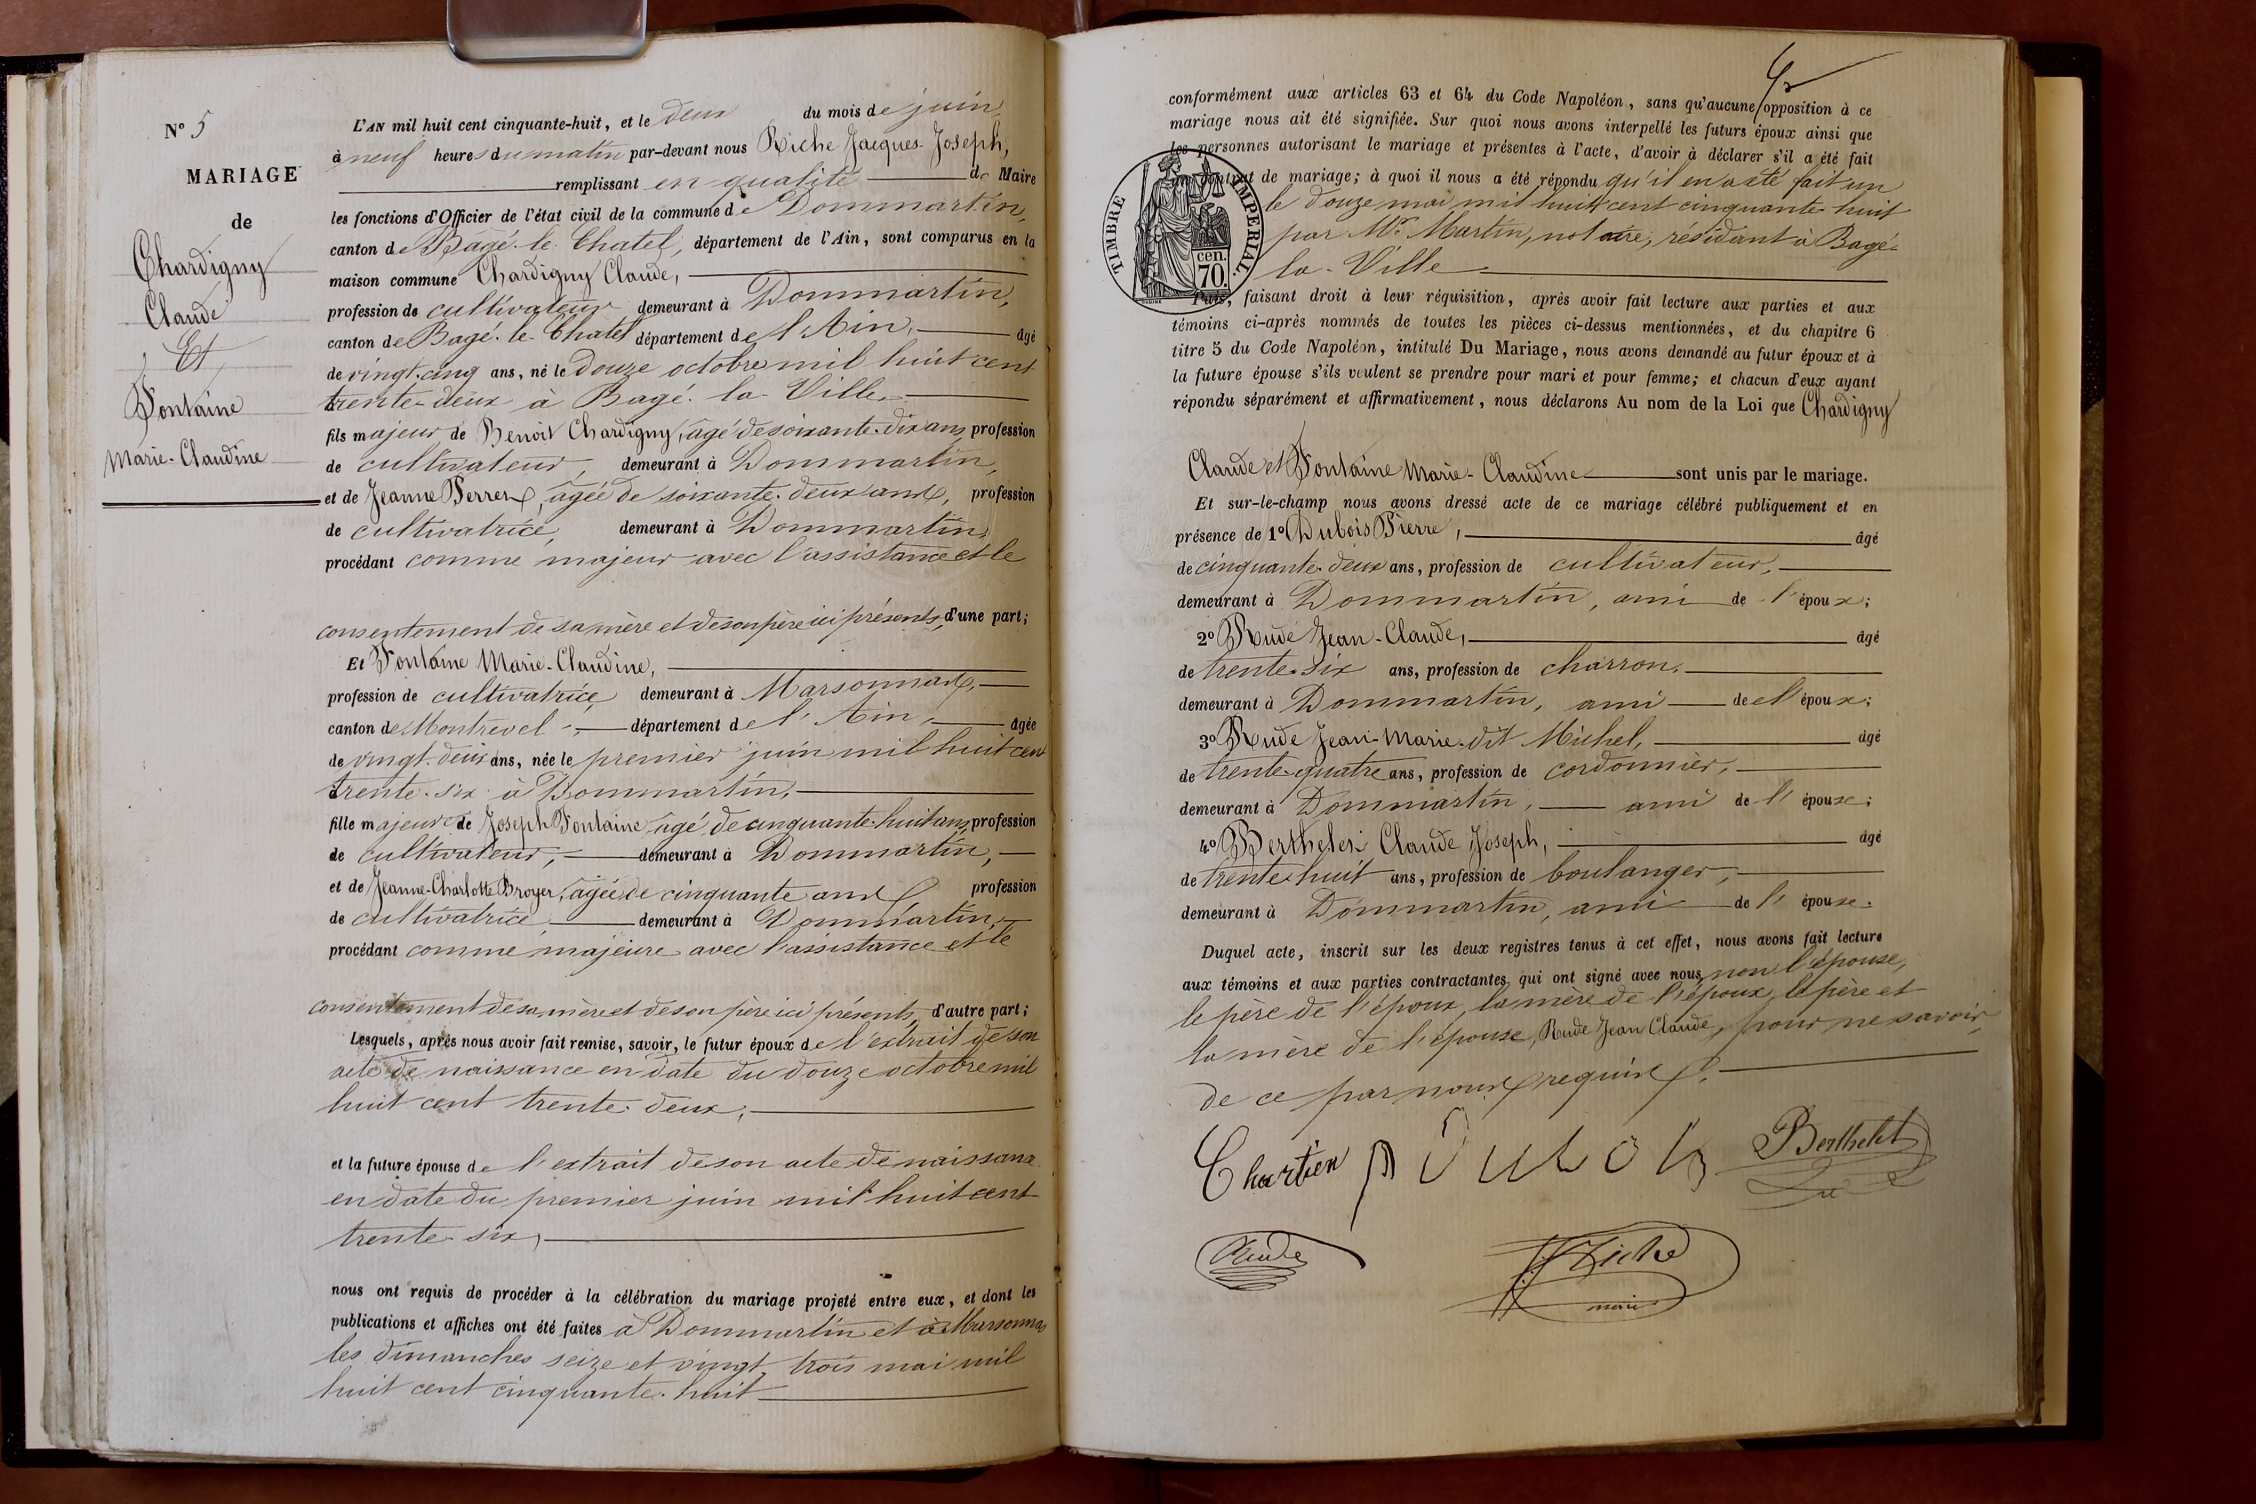 N° 5
MARIAGE
de
Chardigny
Claude
Et
Fontaine
Marie-Claudine
L'AN mil huit cent cinquante-huit, et le deux du mois de juin,
à neuf heures du matin par-devant nous Riche Jacques-Joseph,
remplissant en qualité de Maire
les fonctions d'Officier de l'état civil de la commune de Dommartin,
canton de Bagé-le-Chatel, département de l'Ain, sont comparus en la
maison commune Chardigny Claude,
profession de cultivateur demeurant à Dommartin,
canton de Bagé-le-Chatel département de l'Ain, âgé
de vingt-cinq ans, né le douze octobre mil huit cent
trente-deux à Bagé-la-Ville
fils majeur de Benoit Chardigny, âgé de soixante-dix ans, profession
de cultivateur, demeurant à Dommartin,
et de Jeanne Ferren, âgée de soixante-deux ans, profession
de cultivatrice, demeurant à Dommartin,
procédant comme majeur avec l'assistance et le
consentement de sa mère et de son père ici présents, d'une part;
Et Fontaine Marie-Claudine,
profession de cultivatrice demeurant à Marsonnas,
canton de Montrevel département de l'Ain, âgée
de vingt-deux ans, née le premier juin mil huit cent
trente-six à Dommartin,
fille majeure de Joseph Fontaine âgé de cinquante-huit ans, profession
de cultivateur, demeurant à Dommartin,
et de Jeanne-Charlotte Broyer, âgée de cinquante ans profession
de cultivatrice, demeurant à Dommartin,
procédant comme majeure avec l'assistance et le
consentement de sa mère et de son père ici présents, d'autre part;
Lesquels, après nous avoir fait remise, savoir, le futur époux de l'extrait de son
acte de naissance en date du douze octobre mil
huit cent trente-deux,
et la future épouse de l'extrait de son acte de naissance
en date du premier juin mil huit cent
trente-six,
nous ont requis de procéder à la célébration du mariage projeté entre eux, et dont les
publications et affiches ont été faites à Dommartin et à Marsonnas
les dimanches seize et vingt-trois mai mil
huit cent cinquante-huit
conformément aux articles 63 et 64 du Code Napoléon, sans qu'aucune opposition à ce
mariage nous ait été signifiée. Sur quoi nous avons interpellé les futurs époux ainsi que
les personnes autorisant le mariage et présentes à l'acte, d'avoir à déclarer s'il a été fait
contrat de mariage; à quoi il nous a été répondu qu'il en a été fait un
le douze mai mil huit cent cinquante-huit
par Mr Martin, notaire, résidant à Bagé-
la-Ville
TIMBRE IMPERIAL.
cen.
70.
Puis, faisant droit à leur réquisition, après avoir fait lecture aux parties et aux
témoins ci-après nommés de toutes les pièces ci-dessus mentionnées, et du chapitre 6
titre 5 du Code Napoléon, intitulé Du Mariage, nous avons demandé au futur époux et à
la future épouse s'ils veulent se prendre pour mari et pour femme; et chacun d'eux ayant
répondu séparément et affirmativement, nous déclarons Au nom de la Loi que Chardigny
Claude et Fontaine Marie-Claudine sont unis par le mariage.
Et sur-le-champ nous avons dressé acte de ce mariage célébré publiquement et en
présence de 1° Dubois Pierre, âgé
de cinquante-deux ans, profession de cultivateur,
demeurant à Dommartin, ami de l'époux;
2° Rude Jean-Claude, âgé
de trente-six ans, profession de charron,
demeurant à Dommartin, ami de l'époux;
3° Rude Jean-Marie dit Michel, âgé
de trente-quatre ans, profession de cordonnier,
demeurant à Dommartin, ami de l'épouse;
4° Berthelet Claude Joseph, âgé
de trente-huit ans, profession de boulanger,
demeurant à Dommartin, ami de l'épouse.
Duquel acte, inscrit sur les deux registres tenus à cet effet, nous avons fait lecture
aux témoins et aux parties contractantes qui ont signé avec nous, non l'épouse,
le père de l'époux, la mère de l'époux, le père et
la mère de l'épouse, Rude Jean Claude, pour ne savoir,
de ce par nous requis.
P Dubois
Berthelet
Rude
J J Riche
maire